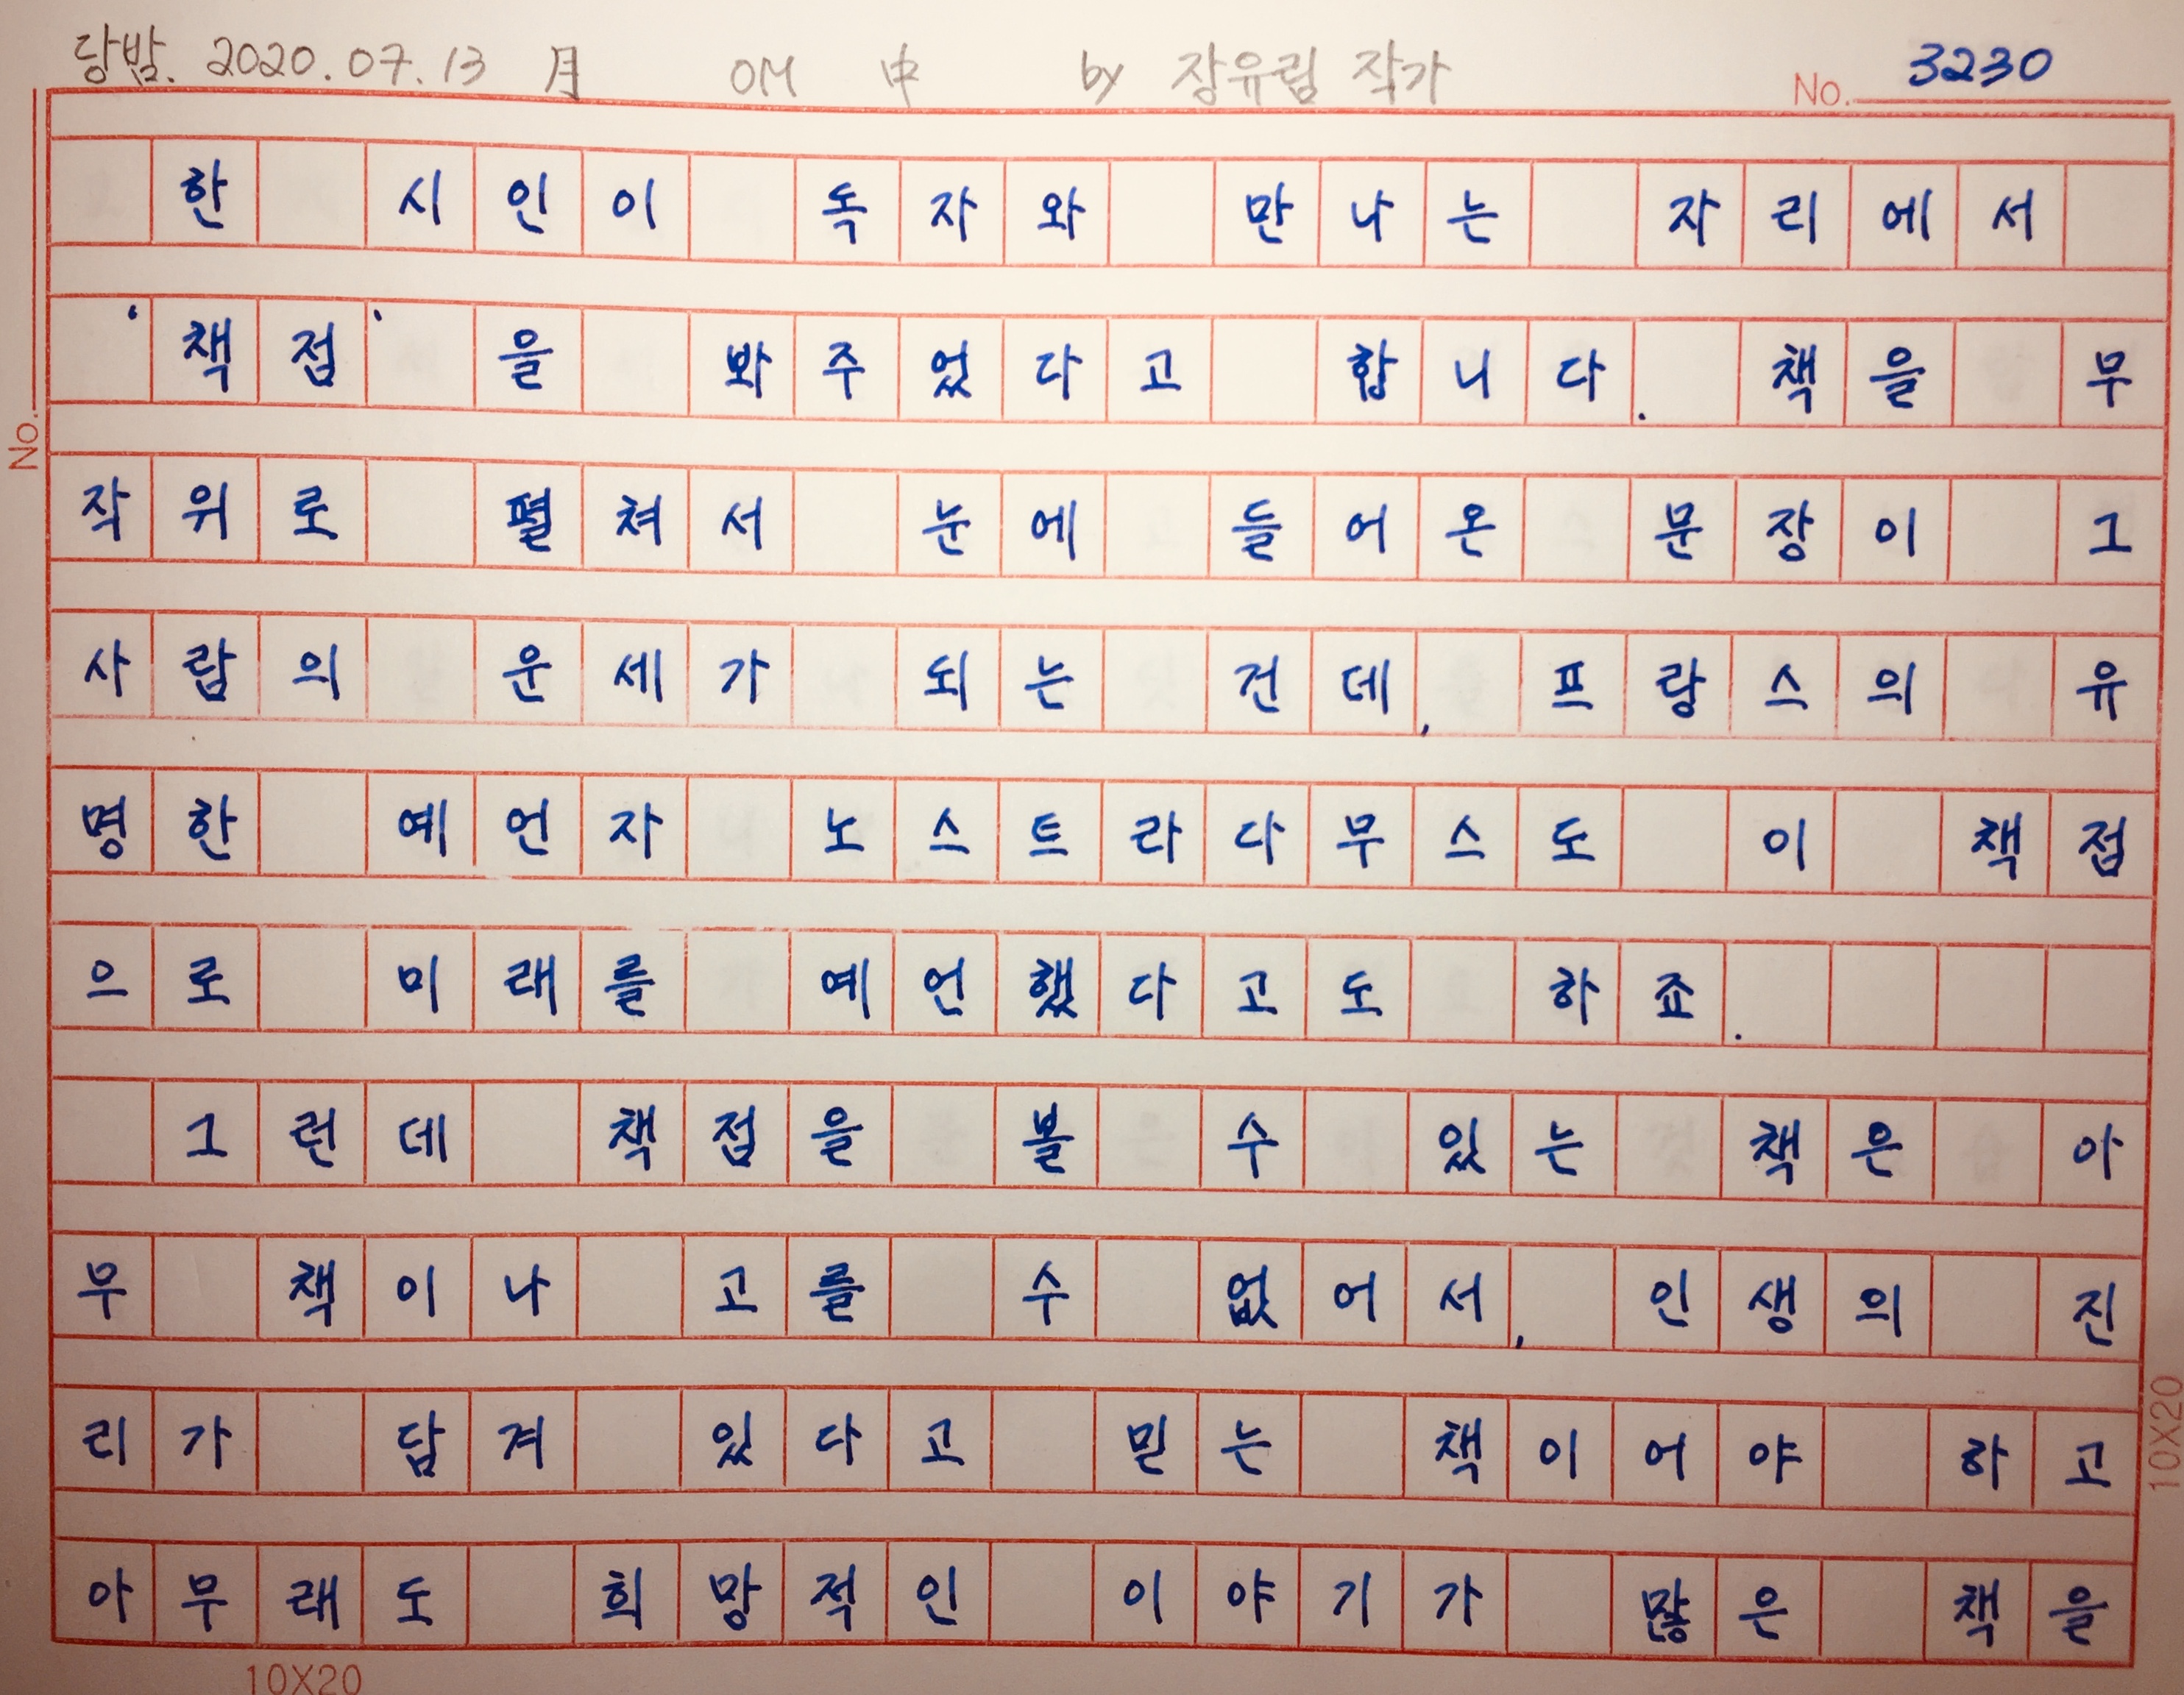 당밤. 2020.07.13 月 OM 中 by 장유림 작가 No. 3230
한 시인이 독자와 만나는 자리에서
'책점'을 봐주었다고 합니다. 책을 무
작위로 펼쳐서 눈에 들어온 문장이 그
사람의 운세가 되는 건데, 프랑스의 유
명한 예언자 노스트라다무스도 이 책점
으로 미래를 예언했다고도 하죠.
그런데 책점을 볼 수 있는 책은 아
무 책이나 고를 수 없어서, 인생의 진
리가 담겨 있다고 믿는 책이어야 하고
아무래도 희망적인 이야기가 많은 책을
No.
10X20
10X20